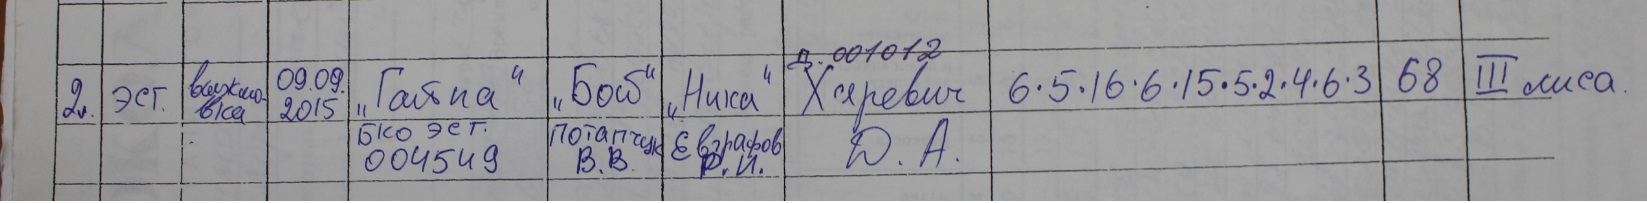 д. 001012
2. эст. выжло- 09.09. „Гайна“ „Бой“ „Ника“ Хяревич 6·5·16·6·15·5·2·4·6·3 68 III лиса.
вка 2015
БКО эст. Потапчук Евграфов Д. А.
004549 В.В. Р.И.